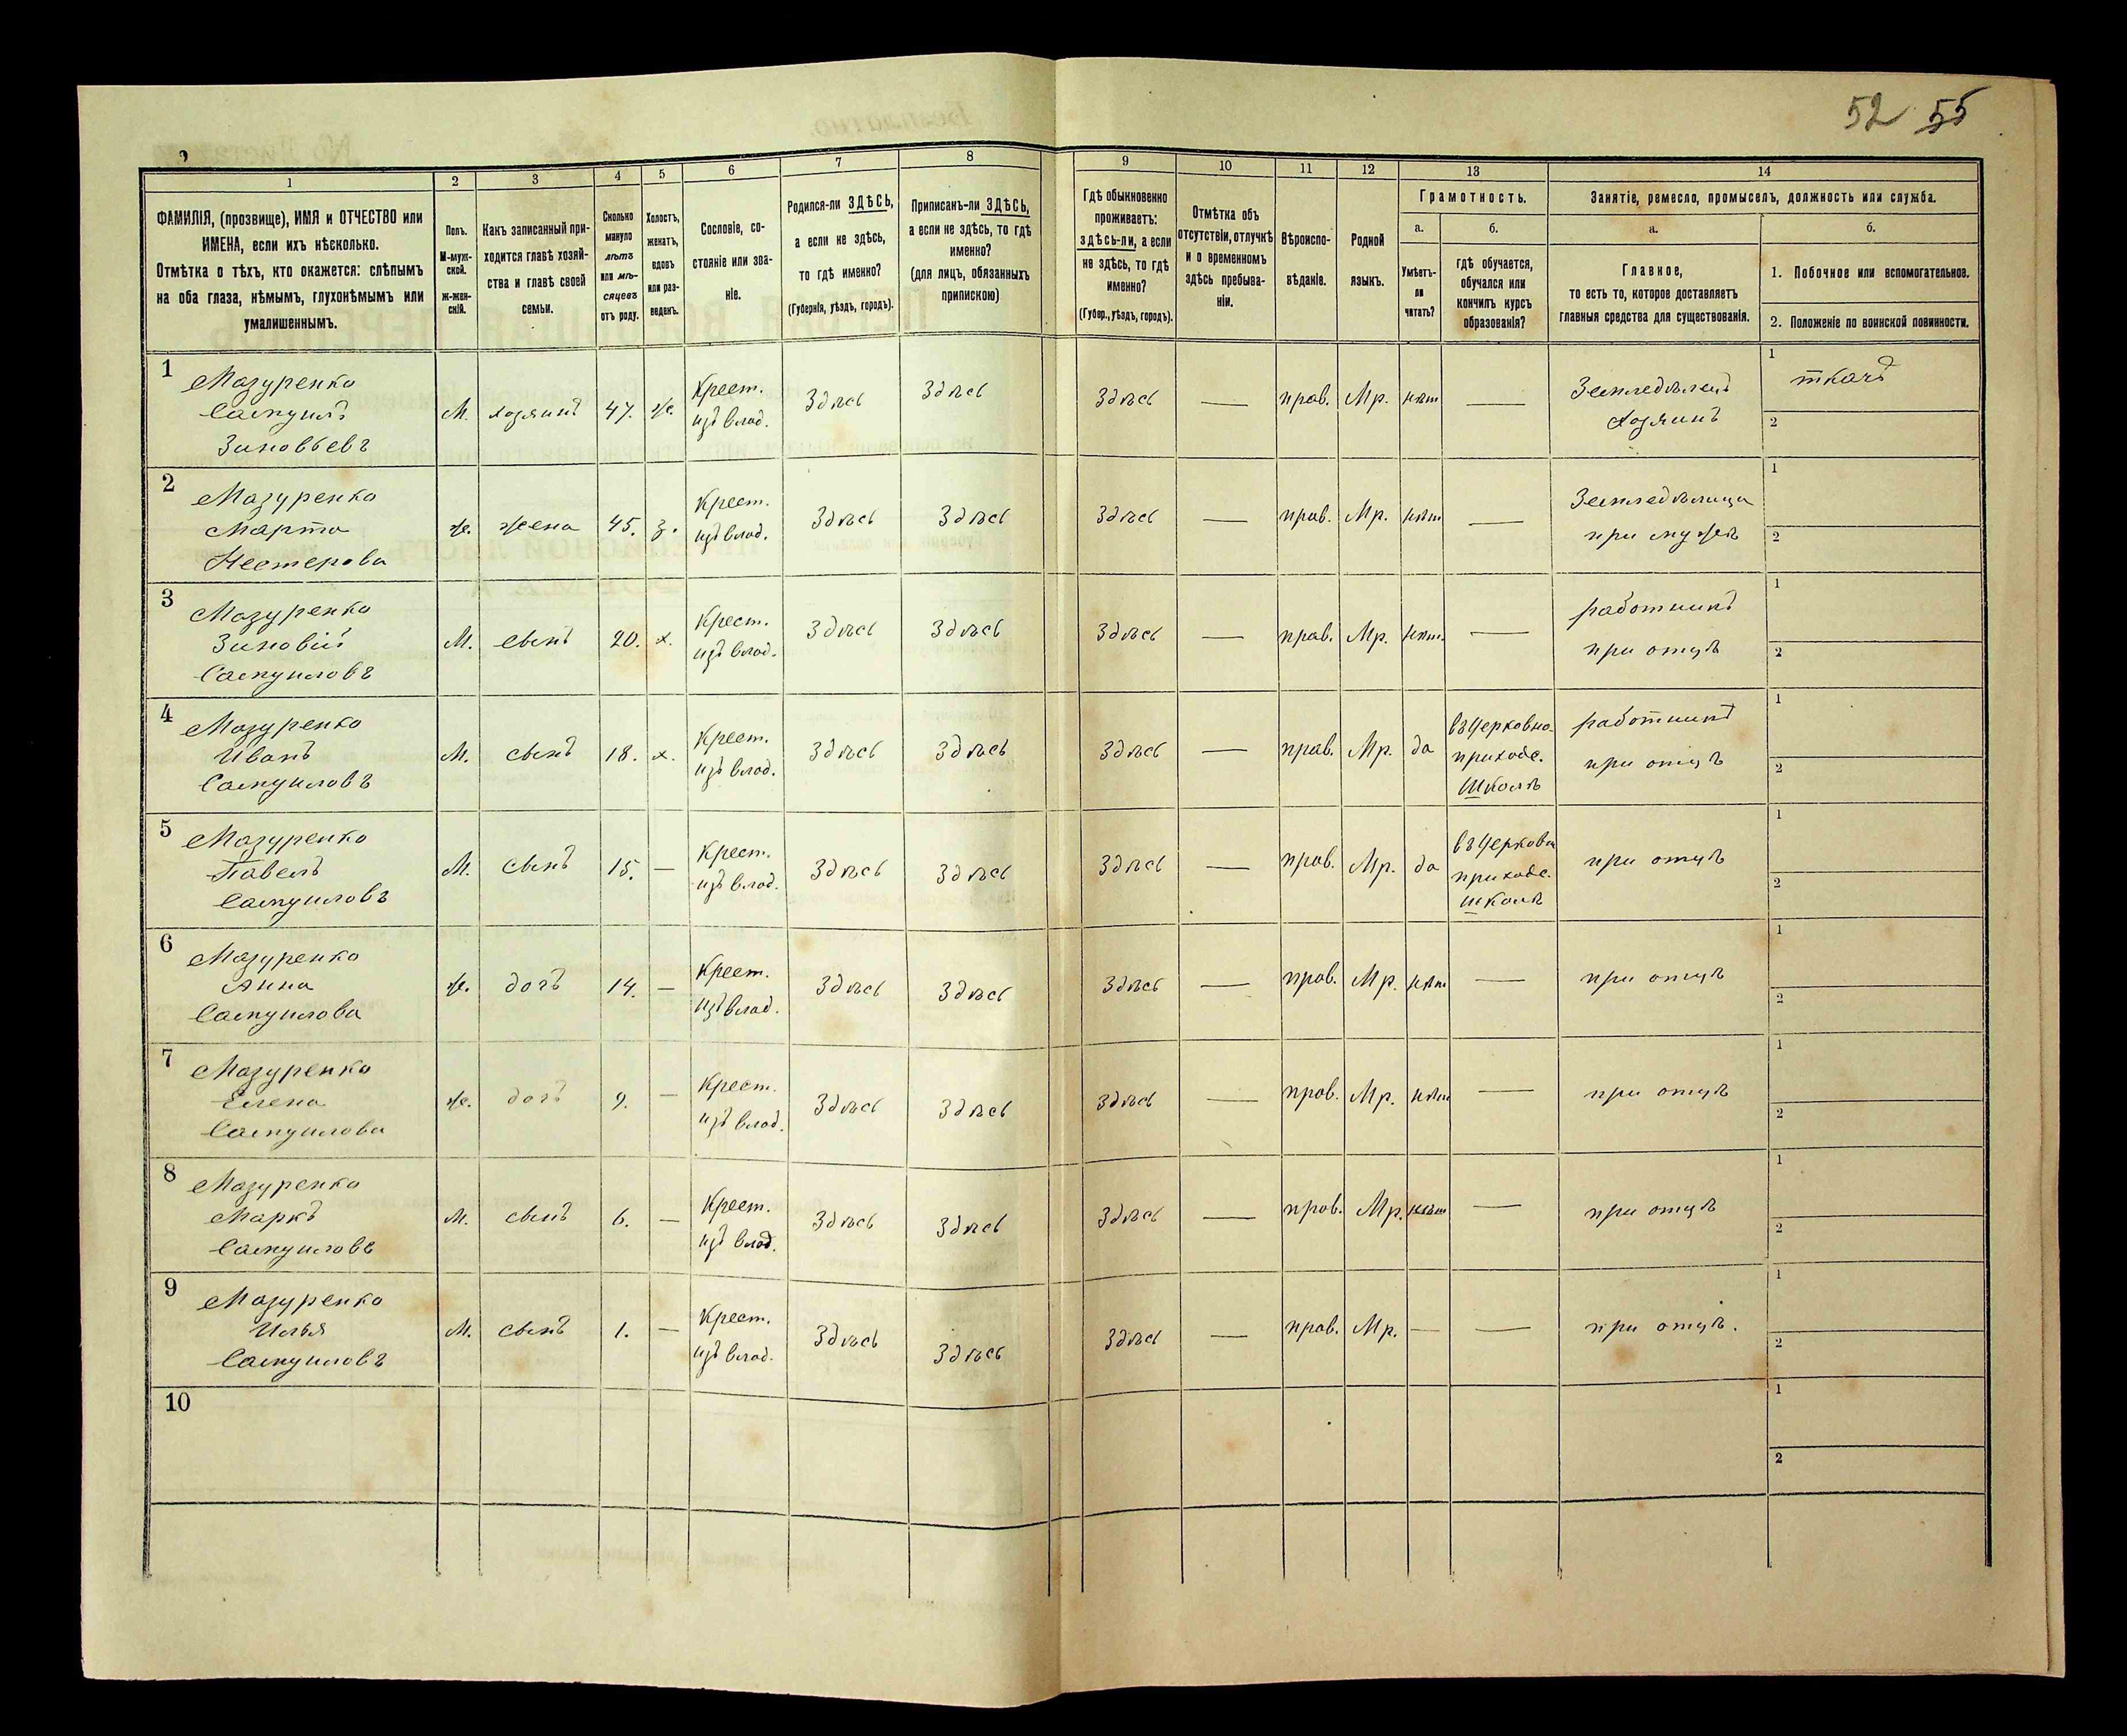 52 55
1
2
3
4
5
6
7
8
9
10
11
12
13
14
ФАМИЛІЯ, (прозвище), ИМЯ и ОТЧЕСТВО или
ИМЕНА, если ихъ нѣсколько.
Отмѣтка о тѣхъ, кто окажется: слѣпымъ
на оба глаза, нѣмымъ, глухонѣмымъ или
умалишеннымъ.
Полъ.
М-муж-
ской.
Ж-жен-
скій.
Какъ записанный при-
ходится главѣ хозяй-
ства и главѣ своей
семьи.
Сколько
минуло
лѣтъ
или мѣ-
сяцевъ
отъ роду.
Холостъ,
женатъ,
вдовъ
или раз-
веденъ.
Сословіе, со-
стояніе или зва-
ніе.
Родился-ли ЗДѢСЬ,
а если не здѣсь,
то гдѣ именно?
(Губернія, уѣздъ, городъ).
Приписанъ-ли ЗДѢСЬ,
а если не здѣсь, то гдѣ
именно?
(для лицъ, обязанныхъ
припискою)
Гдѣ обыкновенно
проживаетъ:
здѣсь-ли, а если
не здѣсь, то гдѣ
именно?
(Губер., уѣздъ, городъ).
Отмѣтка объ
отсутствіи, отлучкѣ
и о временномъ
здѣсь пребыва-
ніи.
Вѣроиспо-
вѣданіе.
Родной
языкъ.
Грамотность.
а.
б.
Умѣетъ-
ли
читать?
гдѣ обучается,
обучался или
кончилъ курсъ
образованія?
Занятіе, ремесло, промыселъ, должность или служба.
а.
б.
Главное,
то есть то, которое доставляетъ
главныя средства для существованія.
1. Побочное или вспомогательное.
2. Положеніе по воинской повинности.
1
Мазуренко
Самуилъ
Зиновьевъ
М.
хозяинъ
47.
ж.
Крест.
изъ влад.
Здѣсь
Здѣсь
Здѣсь
—
прав.
Мр.
нѣт
—
Земледѣлецъ
хозяинъ
1
ткачъ
2
2
Мазуренко
Марта
Нестерова
ж.
жена
45.
з.
Крест.
изъ влад.
Здѣсь
Здѣсь
Здѣсь
—
прав.
Мр.
нѣт
—
Земледѣлица
при мужѣ
1
2
3
Мазуренко
Зиновій
Самуиловъ
М.
сынъ
20.
х.
Крест.
изъ влад.
Здѣсь
Здѣсь
Здѣсь
—
прав.
Мр.
нѣт.
—
работникъ
при отцѣ
1
2
4
Мазуренко
Иванъ
Самуиловъ
М.
сынъ
18.
х.
Крест.
изъ влад.
Здѣсь
Здѣсь
Здѣсь
—
прав.
Мр.
да
въ Церковно-
приходс.
школѣ
работникъ
при отцѣ
1
2
5
Мазуренко
Павелъ
Самуиловъ
М.
сынъ
15.
—
Крест.
изъ влад.
Здѣсь
Здѣсь
Здѣсь
—
прав.
Мр.
да
въ Церковн
приходс.
школѣ
при отцѣ
1
2
6
Мазуренко
Анна
Самуилова
ж.
дочь
14.
—
Крест.
изъ влад.
Здѣсь
Здѣсь
Здѣсь
—
прав.
Мр.
нѣт
—
при отцѣ
1
2
7
Мазуренко
Елена
Самуилова
ж.
дочь
9.
—
Крест.
изъ влад.
Здѣсь
Здѣсь
Здѣсь
—
прав.
Мр.
нѣт
—
при отцѣ
1
2
8
Мазуренко
Маркъ
Самуиловъ
М.
сынъ
6.
—
Крест.
изъ влад.
Здѣсь
Здѣсь
Здѣсь
—
прав.
Мр.
нѣт
—
при отцѣ
1
2
9
Мазуренко
Илья
Самуиловъ
М.
сынъ
1.
—
Крест.
изъ влад.
Здѣсь
Здѣсь
Здѣсь
—
прав.
Мр.
—
—
при отцѣ.
1
2
10
1
2